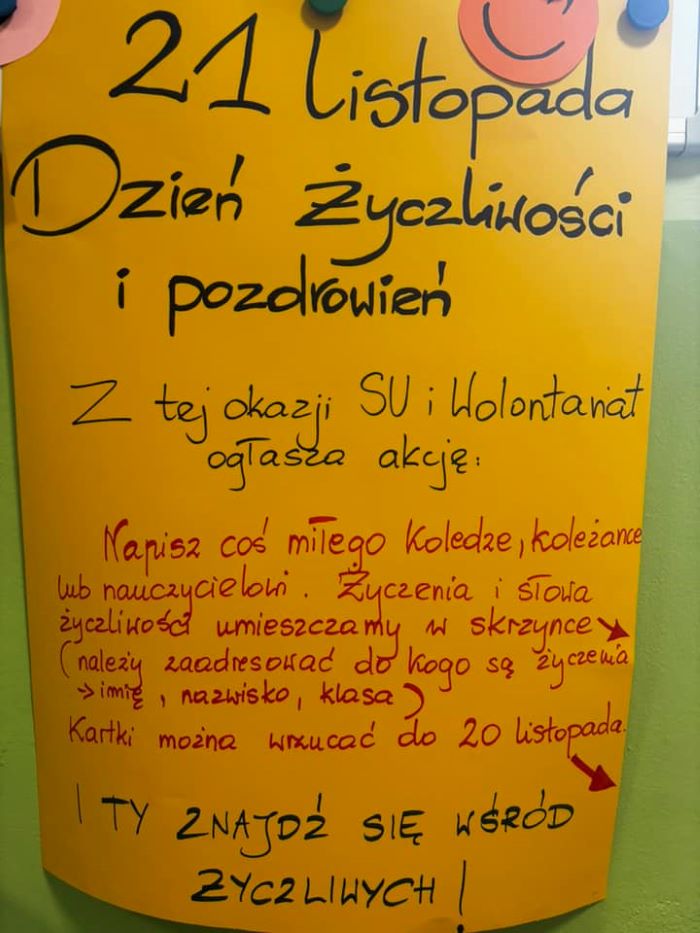 21 listopada
Dzień Życzliwości
i pozdrowień
Z tej okazji SU i Wolontariat
ogłasza akcję:
Napisz coś miłego koledze, koleżance
lub nauczycielowi. Życzenia i słowa
życzliwości umieszczamy w skrzynce →
(należy zaadresować do kogo są życzenia
→ imię, nazwisko, klasa)
Kartki można wrzucać do 20 listopada.
I TY ZNAJDŹ SIĘ WŚRÓD
ŻYCZLIWYCH!